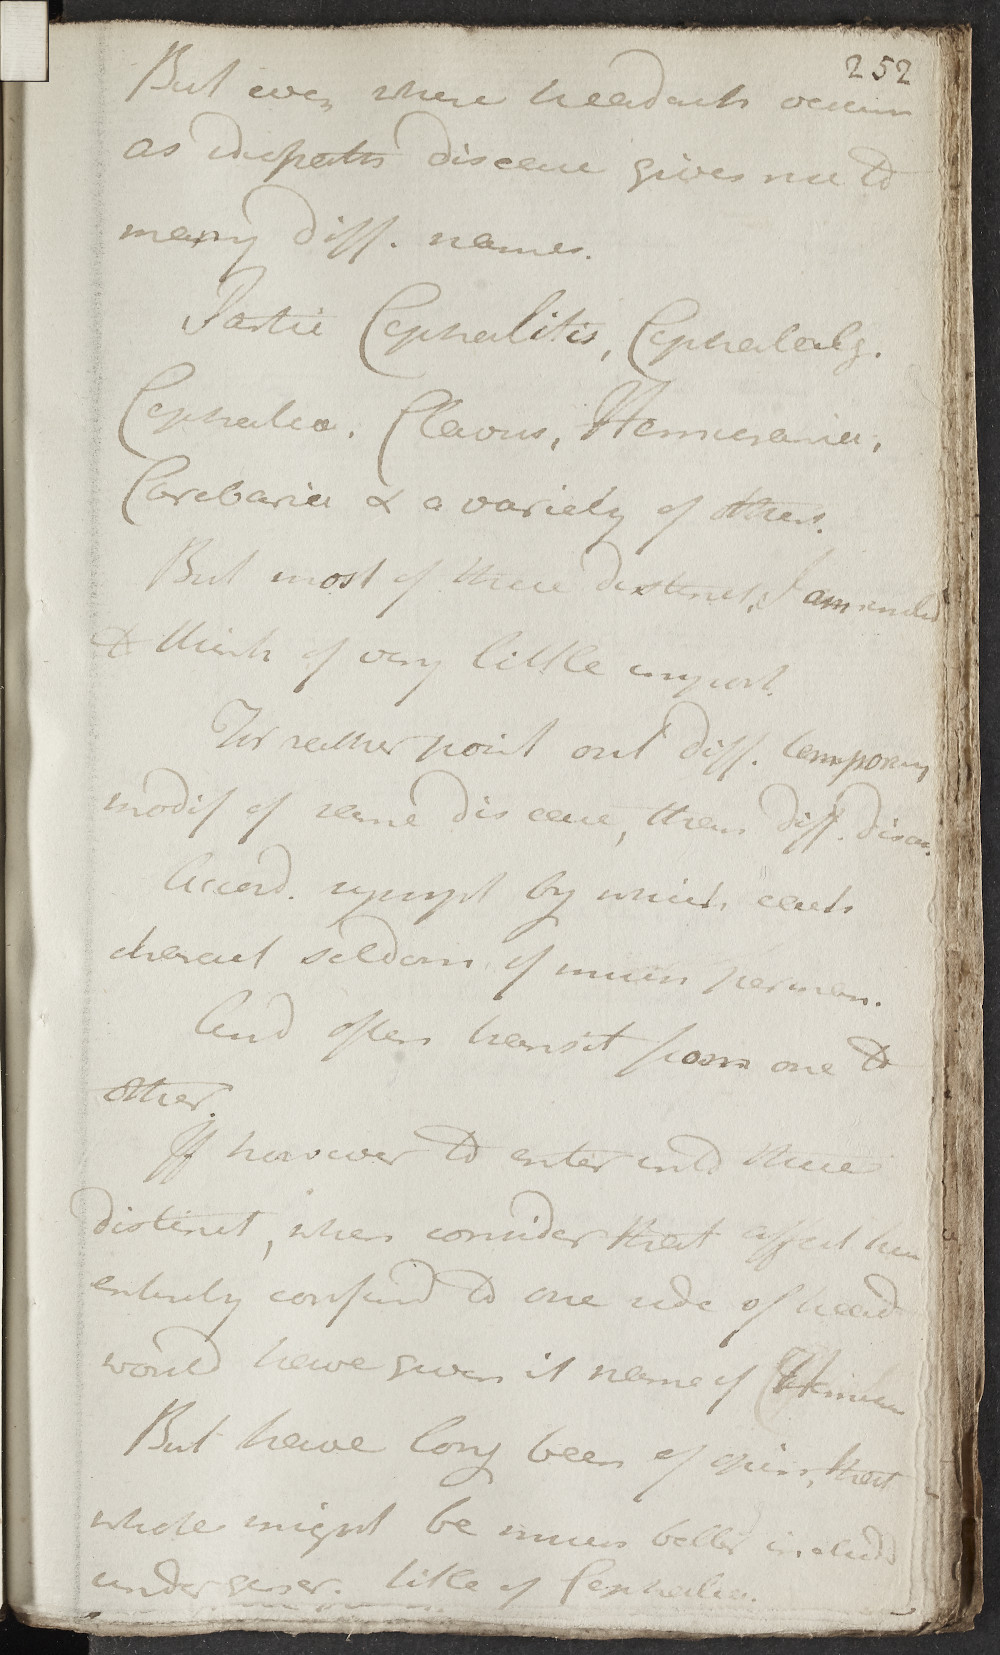 252
But even where headach occurs
as idiopath disease gives rise to
many diff. names.
Partic Cephalitis, Cephalalg.
Cephalea. Clavus, Hemicrania,
Carebaria & a variety of others.
But most of these distinct, I am inclin
to think of very little import.
For rather point out diff. temporary
modif of same disease, than diff. diseas.
Accord. sympt by which each
charact seldom of much perman.
And often transit from one to
other.
If however to enter into these
distinct, when consider that affect here
entirely confind to one side of head
would have given it name of Hemicran
But have long been of opin, that
whole might be much better includd
under gener. title of Cephalea.